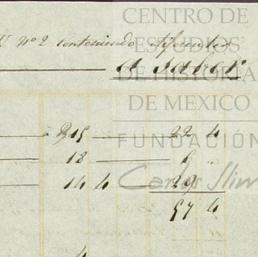 CENTRO DE
ESTUDIOS
DE HISTORIA
DE MEXICO
FUNDACIÓN
Carlos Slim
nº 2 conteniendo efectos
a saber
215 22 4
18 6 "
14 4 29
57 4
4